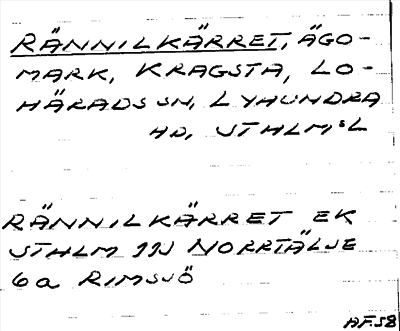 RÄNNILKÄRRET, ÄGO-
MARK, KRAGSTA, LO-
HÄRADS SN, LYHUNDRA
HD, STHLMS L
RÄNNILKÄRRET EK
STHLM 11J NORRTÄLJE
6a RIMSJÖ
AF.58